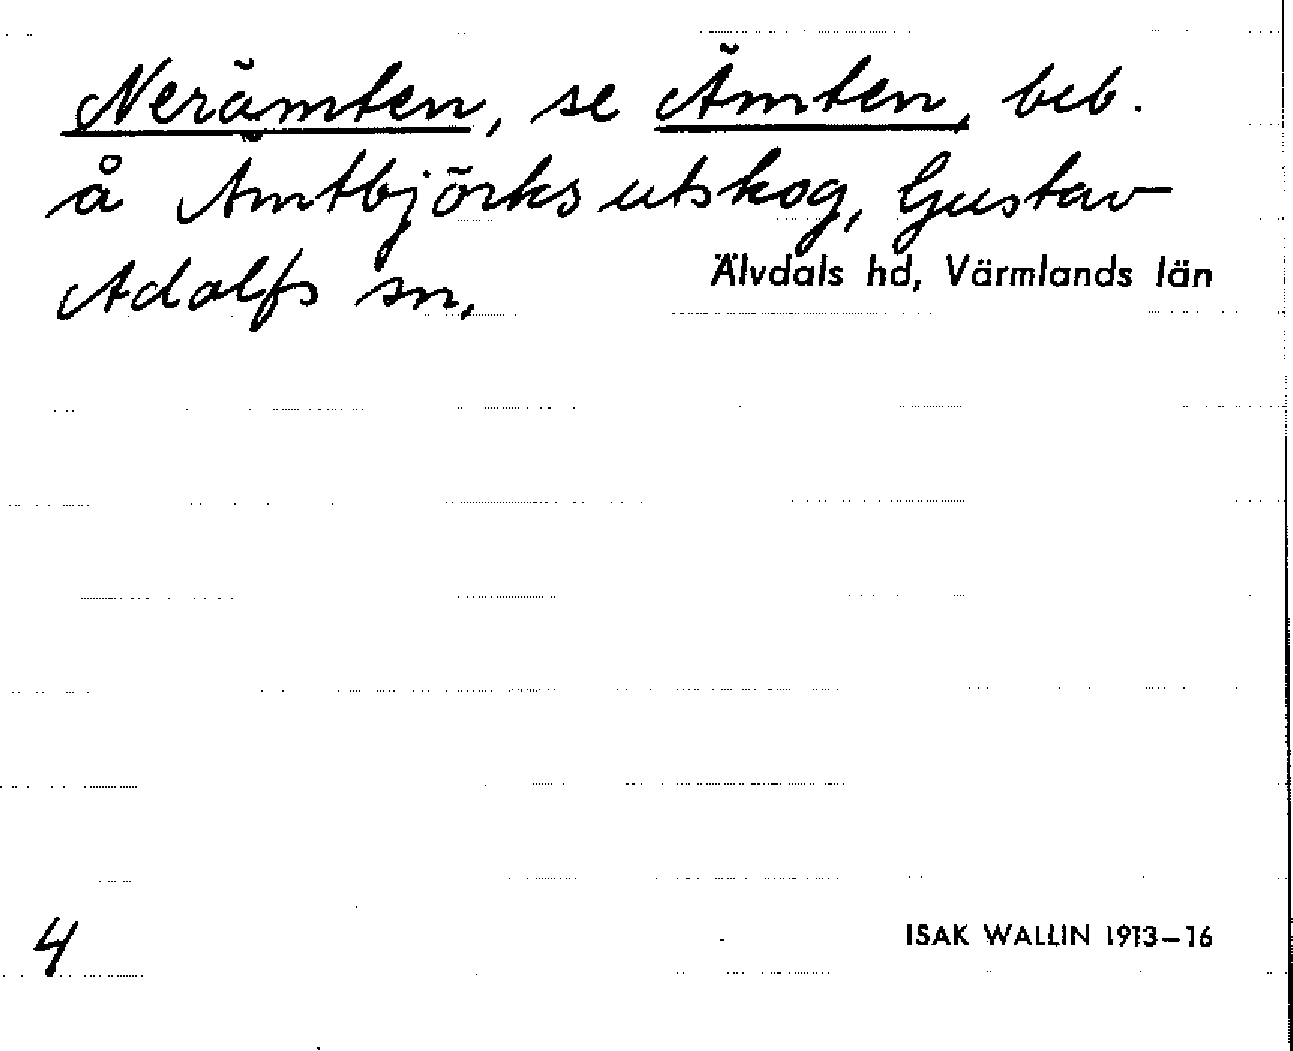 Nerämten, se Ämten, beb.
å Ämtbjörks utskog, Gustav
Adolfs sn,
Älvdals hd, Värmlands län
4
ISAK WALLIN 1913–16